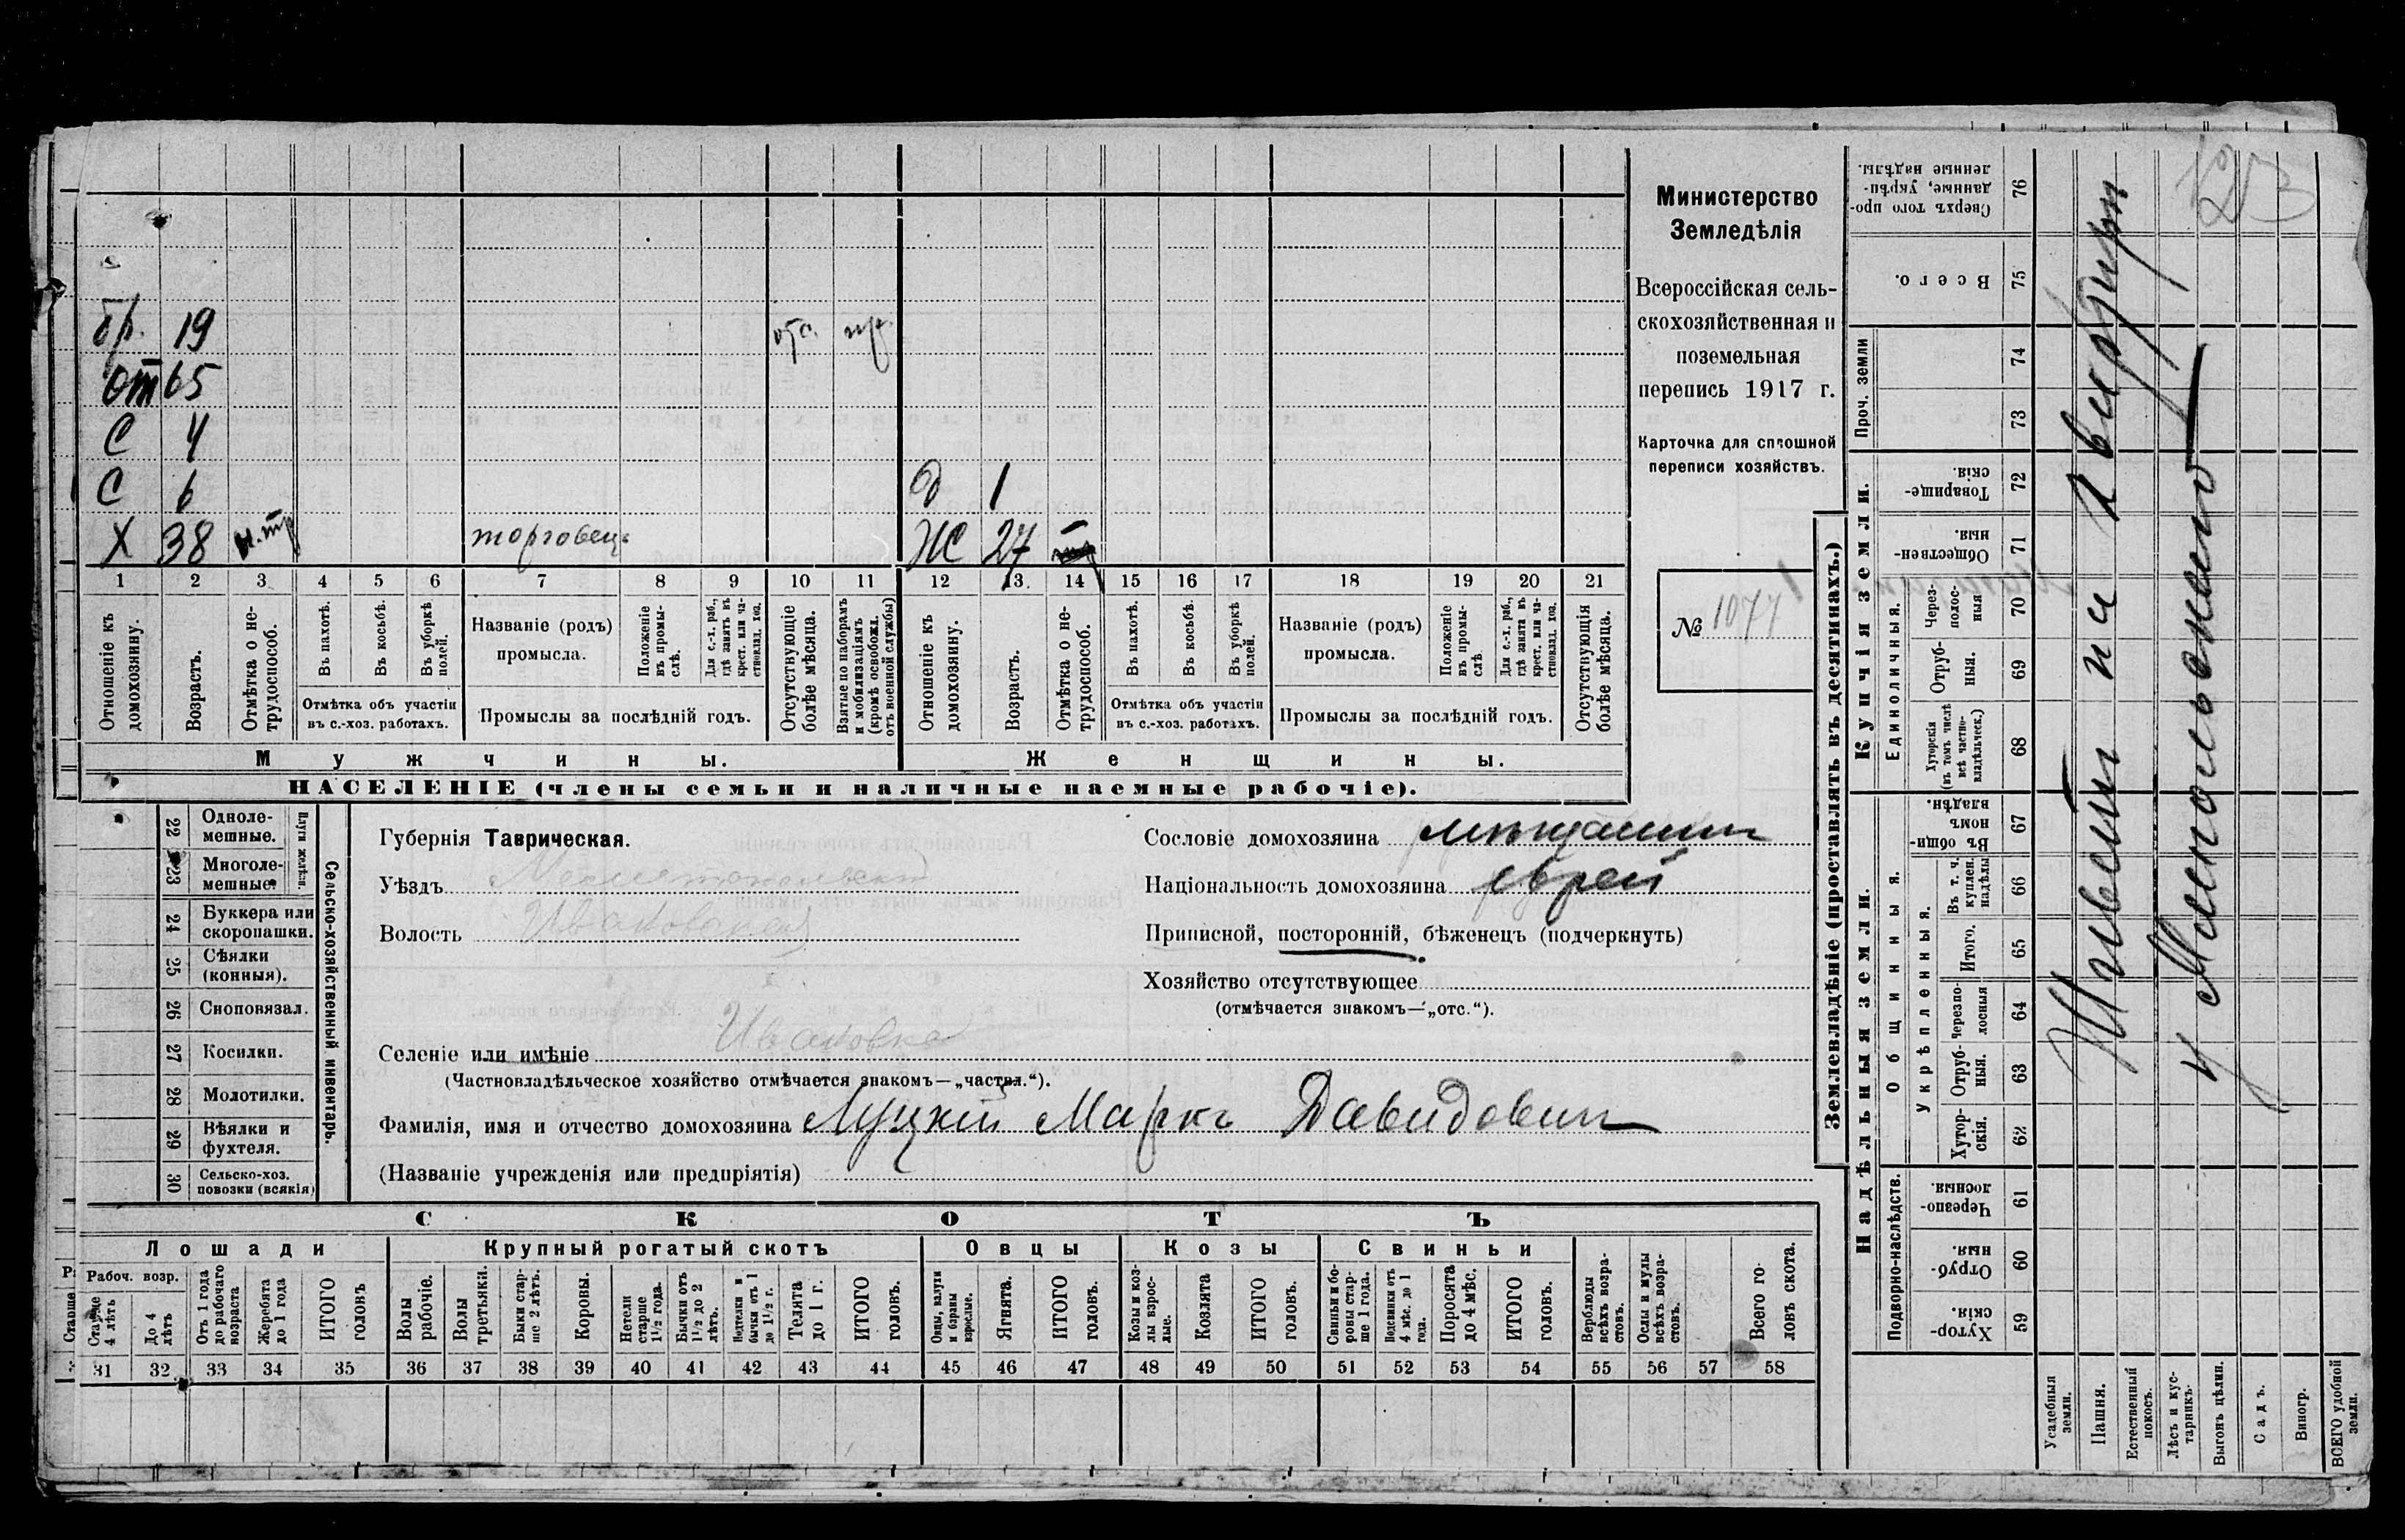 бр. 19 отс. пр.
от 65
С 4
С 6 д 1
Х 38 н.тр торговецъ Ж 27
1 2 3 4 5 6 7 8 9 10 11 12 13 14 15 16 17 18 19 20 21
Отношеніе къ домохозяину.
Возрастъ.
Отмѣтка о не-трудоспособ.
Въ пахотѣ.
Въ косьбѣ.
Въ уборкѣ полей.
Отмѣтка объ участіи
въ с.-хоз. работахъ.
Названіе (родъ)
промысла.
Положеніе въ промы-слѣ.
Для с.-х. раб., гдѣ занятъ въ крест. или ча-стновлад. хоз.
Промыслы за послѣдній годъ.
Отсутствующіе болѣе мѣсяца.
Взятые по наборамъ и мобилизаціямъ (кромѣ освобожд. отъ военной службы)
Отношеніе къ домохозяину.
Возрастъ.
Отмѣтка о не-трудоспособ.
Въ пахотѣ.
Въ косьбѣ.
Въ уборкѣ полей.
Отмѣтка объ участіи
въ с.-хоз. работахъ.
Названіе (родъ)
промысла.
Положеніе въ промы-слѣ.
Для с.-х. раб., гдѣ занята въ крест. или ча-стновлад. хоз.
Промыслы за послѣдній годъ.
Отсутствующія болѣе мѣсяца.
Мужчины.
Женщины.
НАСЕЛЕНІЕ (члены семьи и наличные наемные рабочіе).
Министерство
Земледѣлія
Всероссійская сель-
скохозяйственная и
поземельная
перепись 1917 г.
Карточка для сплошной
переписи хозяйствъ.
№ 1077
22 Одноле-мешные.
23 Многоле-мешные.
Плуги желѣзн.
24 Буккера или скоропашки.
25 Сѣялки (конныя).
26 Сноповязал.
27 Косилки.
28 Молотилки.
29 Вѣялки и фухтеля.
30 Сельско-хоз. повозки (всякія)
Сельско-хозяйственный инвентарь.
Губернія Таврическая.
Уѣздъ Мелитопольскій
Волость Ивановская
Сословіе домохозяина мѣщанин
Національность домохозяина еврей
Приписной, посторонній, бѣженецъ (подчеркнуть)
Хозяйство отсутствующее
(отмѣчается знакомъ—„отс.“).
Селеніе или имѣніе Ивановка
(Частновладѣльческое хозяйство отмѣчается знакомъ—„частвл.“).
Фамилія, имя и отчество домохозяина Луцкій Маркъ Давидович
(Названіе учрежденія или предпріятія)
СКОТЪ
Лошади Крупный рогатый скотъ Овцы Козы Свиньи
Рабоч. возр.
Старше 4 лѣтъ
До 4 лѣтъ
Отъ 1 года до рабочаго возраста
Жеребята до 1 года
ИТОГО головъ
Волы рабочіе.
Волы третьяки.
Быки стар-ше 2 лѣтъ.
Коровы.
Нетели старше 1½ года.
Бычки отъ 1½ до 2 лѣтъ.
Подтелки и бычки отъ 1 до 1½ г.
Телята до 1 г.
ИТОГО головъ.
Овцы, валухи и бараны взрослые.
Ягнята.
ИТОГО головъ.
Козы и коз-лы взрос-лые.
Козлята
ИТОГО головъ.
Свиньи и бо-ровы стар-ше 1 года.
Подсвинки отъ 4 мѣс. до 1 года.
Поросята до 4 мѣс.
ИТОГО головъ.
Верблюды всѣхъ возра-стовъ.
Ослы и мулы всѣхъ возра-стовъ.
Всего го-ловъ скота.
31 32 33 34 35 36 37 38 39 40 41 42 43 44 45 46 47 48 49 50 51 52 53 54 55 56 57 58
Землевладѣніе (проставлять въ десятинахъ.)
Надѣльныя земли. Купчія земли. Проч. земли
Подворно-наслѣдств. Общинныя. Единоличныя.
Укрѣпленныя.
Сверхъ того про-данные, укрѣп-ленные надѣлы. 76
Всего. 75
74
73
Товарище-скія. 72
Обществен-ныя. 71
Через-полос-ныя 70
Отруб-ныя. 69
Хуторскія (въ томъ числѣ всѣ частно-владѣльческ.) 68
Въ общин-номъ владѣн. 67
Въ т. ч. куплен. надѣлы 66
Итого. 65
Черезпо-лосныя 64
Отруб-ныя. 63
Хутор-скія. 62
Черезпо-лосныя. 61
Отруб-ныя. 60
Хутор-скія. 59
Усадебныя земли.
Пашня.
Естественный покосъ.
Лѣсъ и кус-тарникъ.
Выгонъ цѣлин.
Садъ.
Виногр.
ВСЕГО удобной земли.
Живет на квартире
у